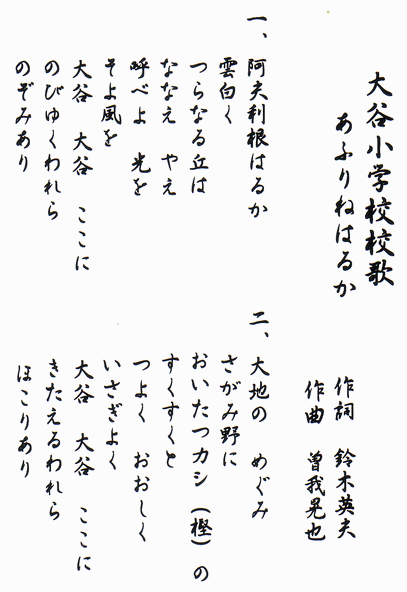 大谷小学校校歌
あふりねはるか
作詞 鈴木英夫
作曲 曽我晃也
一、阿夫利根はるか
雲白く
つらなる丘は
ななえ やえ
呼べよ 光を
そよ風を
大谷 大谷 ここに
のびゆくわれら
のぞみあり
二、大地の めぐみ
さがみ野に
おいたつカシ(樫)の
すくすくと
つよく おおしく
いさぎよく
大谷 大谷 ここに
きたえるわれら
ほこりあり